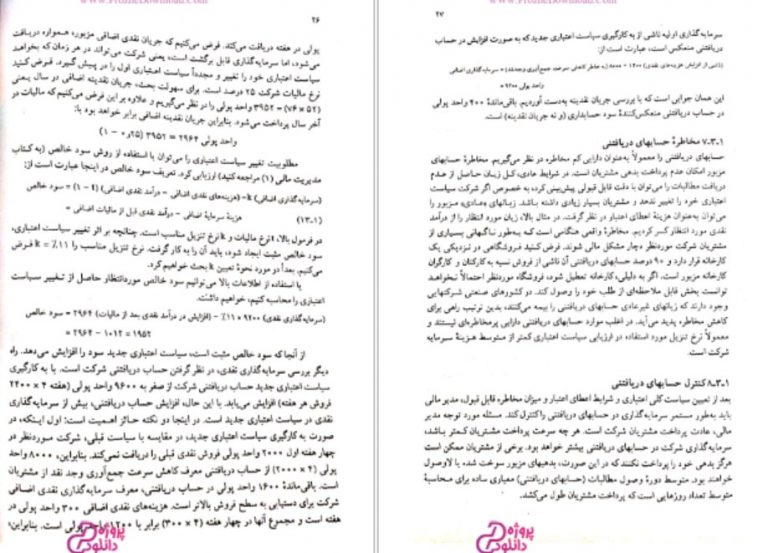 www.ProzheDownload.com
۲۶
پولی در هفته دریافت می‌کند. فرض می‌کنیم که جریان نقدی اضافی مزبوره همواره دریافت
می‌شود، اما سرمایه‌گذاری قابل برگشت است، یعنی شرکت می‌تواند در هر زمان که بخواهد
سیاست اعتباری خود را تغییر و مجدداً سیاست اعتباری اول را در پیش گیرد. فرض کنید
نرخ مالیات شرکت ۲۵ درصد است. برای سهولت بحث، جریان نقدینه اضافی در سال یعنی
(۵۲ × ۷۶) = ۳۹۵۲ واحد پولی را در نظر می‌گیریم و علاوه بر این فرض می‌کنیم که مالیات در
آخر سال پرداخت می‌شود. بنابراین جریان نقدینه اضافی برابر خواهد بود با:
واحد پولی ۲۹۶۴ = ۳۹۵۲ (۰٫۲۵ - ۱)
مطلوبیت تغییر سیاست اعتباری را می‌توان با استفاده از روش سود خالص (به کتاب
مدیریت مالی (۱) مراجعه کنید) ارزیابی کرد. تعریف سود خالص در اینجا عبارت است از:
(سرمایه‌گذاری اضافی) k - (هزینه‌های نقدی اضافی - درآمد نقدی اضافی) (t - ۱) = سود خالص
(۱-۱۳) هزینهٔ سرمایهٔ اضافی - درآمد نقدی قبل از مالیات اضافی =
در فرمول بالا، t نرخ مالیات و k نرخ تنزیل مناسب است. چنانچه بر اثر تغییر سیاست اعتباری،
سود خالص مثبت ایجاد شود، باید آن را به کار گرفت. نرخ تنزیل مناسب را ۱۱٪ = k فرض
می‌کنیم. بعداً در مورد نحوهٔ تعیین k بحث خواهیم کرد.
با استفاده از اطلاعات بالا می‌توانیم سود خالص موردانتظار حاصل از تغییر سیاست
اعتباری را محاسبه کنیم، خواهیم داشت:
(سرمایه‌گذاری نقدی) ۹۲۰۰ × ۱۱٪ - (افزایش در درآمد نقدی بعد از مالیات) ۲۹۶۴ = سود خالص
۱۹۵۲ = ۱۰۱۲ - ۲۹۶۴ =
از آنجا که سود خالص مثبت است، سیاست اعتباری جدید سود را افزایش می‌دهد. راه
دیگر بررسی سرمایه‌گذاری نقدی، در نظر گرفتن حساب دریافتنی شرکت است. با به کارگیری
سیاست اعتباری جدید حساب دریافتنی شرکت از صفر به ۹۶۰۰ واحد پولی (هفته ۴ × ۲۴۰۰
فروش هر هفته) افزایش می‌یابد. با این حال، افزایش حساب دریافتنی، بیش از سرمایه‌گذاری
نقدی در سیاست اعتباری جدید است. در اینجا دو نکته حائز اهمیت است: اول اینکه، در
صورت به کارگیری سیاست اعتباری جدید، در مقایسه با سیاست قبلی، شرکت موردنظر در
چهار هفته اول ۲۰۰۰ واحد پولی فروش نقدی قبلی را دریافت نمی‌کند. بنابراین، ۸۰۰۰ واحد
پولی (۴ × ۲۰۰۰) از حساب دریافتنی معرف کاهش سرعت جمع‌آوری وجد نقد از مشتریان
است. باقی‌ماندهٔ ۱۶۰۰ واحد پولی در حساب دریافتنی، معرف سرمایه‌گذاری نقدی اضافی
شرکت برای دستیابی به سطح فروش بالاتر است. هزینه‌های نقدی اضافی ۳۰۰ واحد پولی در
هفته است و مجموع آنها در چهار هفته (۴ × ۳۰۰) برابر با ۱۲۰۰ واحد پولی است. بنابراین
پروژه
دانلود
www.ProzheDownload.com
۲۷
سرمایه‌گذاری اولیه ناشی از به کارگیری سیاست اعتباری جدید که به صورت افزایش در حساب
دریافتنی منعکس است، عبارت است از:
(ناشی از افزایش هزینه‌های نقدی) ۱۲۰۰ + ۸۰۰۰ (به خاطر کاهش سرعت جمع‌آوری وجه‌نقد) = سرمایه‌گذاری اضافی
واحد پولی ۹۲۰۰ =
این همان جوابی است که با بررسی جریان نقدینه به‌دست آوردیم. باقی‌ماندهٔ ۴۰۰ واحد پولی
در حساب دریافتنی منعکس‌کنندهٔ سود حسابداری (و نه جریان نقدینه) است.
۷ـ۳ـ۱ مخاطرهٔ حسابهای دریافتنی
حسابهای دریافتنی را معمولاً به‌عنوان دارایی کم مخاطره در نظر می‌گیریم. مخاطرهٔ حسابهای
مزبور امکان عدم پرداخت بدهی مشتریان است. در شرایط عادی، کل زیان حاصل از عدم
دریافت مطالبات را می‌توان با دقت قابل قبولی پیش‌بینی کرده به خصوص اگر شرکت سیاست
اعتباری خود را تغییر ندهد و مشتریان بسیار زیادی داشته باشد. زیانهای عادی مزبور را
می‌توان به‌عنوان هزینهٔ اعطای اعتبار در نظر گرفت. در مثال بالا، زیان مورد انتظار را از درآمد
نقدی مورد انتظار کسر کردیم. مخاطرهٔ واقعی هنگامی است که به‌طور ناگهانی بسیاری از
مشتریان شرکت موردنظر دچار مشکل مالی شوند. فرض کنید فروشگاهی در نزدیکی یک
کارخانه قرار دارد و ۹۰ درصد حسابهای دریافتنی آن ناشی از فروش نسیه به کارکنان و کارگران
کارخانه مزبور است. اگر به دلیلی، کارخانه تعطیل شود، فروشگاه موردنظر احتمالاً نخواهد
توانست بخش قابل ملاحظه‌ای از طلب خود را وصول کند. دو کشورهای صنعتی شرکتهایی
وجود دارند که زیانهای غیرعادی حسابهای دریافتنی را بیمه می‌کنند، بدین ترتیب راهی برای
کاهش مخاطره پدید می‌آید. در اغلب موارد حسابهای دریافتنی دارایی پرمخاطره‌ای نیستند و
معمولاً نرخ تنزیل مورد استفاده در ارزیابی سیاست اعتباری کمتر از متوسط هزینهٔ سرمایه
شرکت است.
۸ـ۳ـ۱ کنترل حسابهای دریافتنی
بعد از تعیین سیاست کلی اعتباری و شرایط اعطای اعتبار و میزان مخاطره قابل قبول، مدیر مالی
باید به‌طور مستمر سرمایه‌گذاری در حسابهای دریافتنی را کنترل کند. مسئله مورد توجه مدیر
مالی، عادت پرداخت مشتریان شرکت است. هر چه سرعت پرداخت مشتریان کمتر باشد،
سرمایه‌گذاری شرکت در حسابهای دریافتنی بیشتر خواهد بود. برخی از مشتریان ممکن است
هرگز بدهی خود را پرداخت نکنند که در این صورت، بدهیهای مزبور سوخت شده یا لاوصول
خواهند بود. متوسط دورهٔ وصول مطالبات (حسابهای دریافتنی) معیاری ساده برای محاسبهٔ
متوسط تعداد روزهایی است که پرداخت مشتریان طول می‌کشد.
پروژه
دانلود